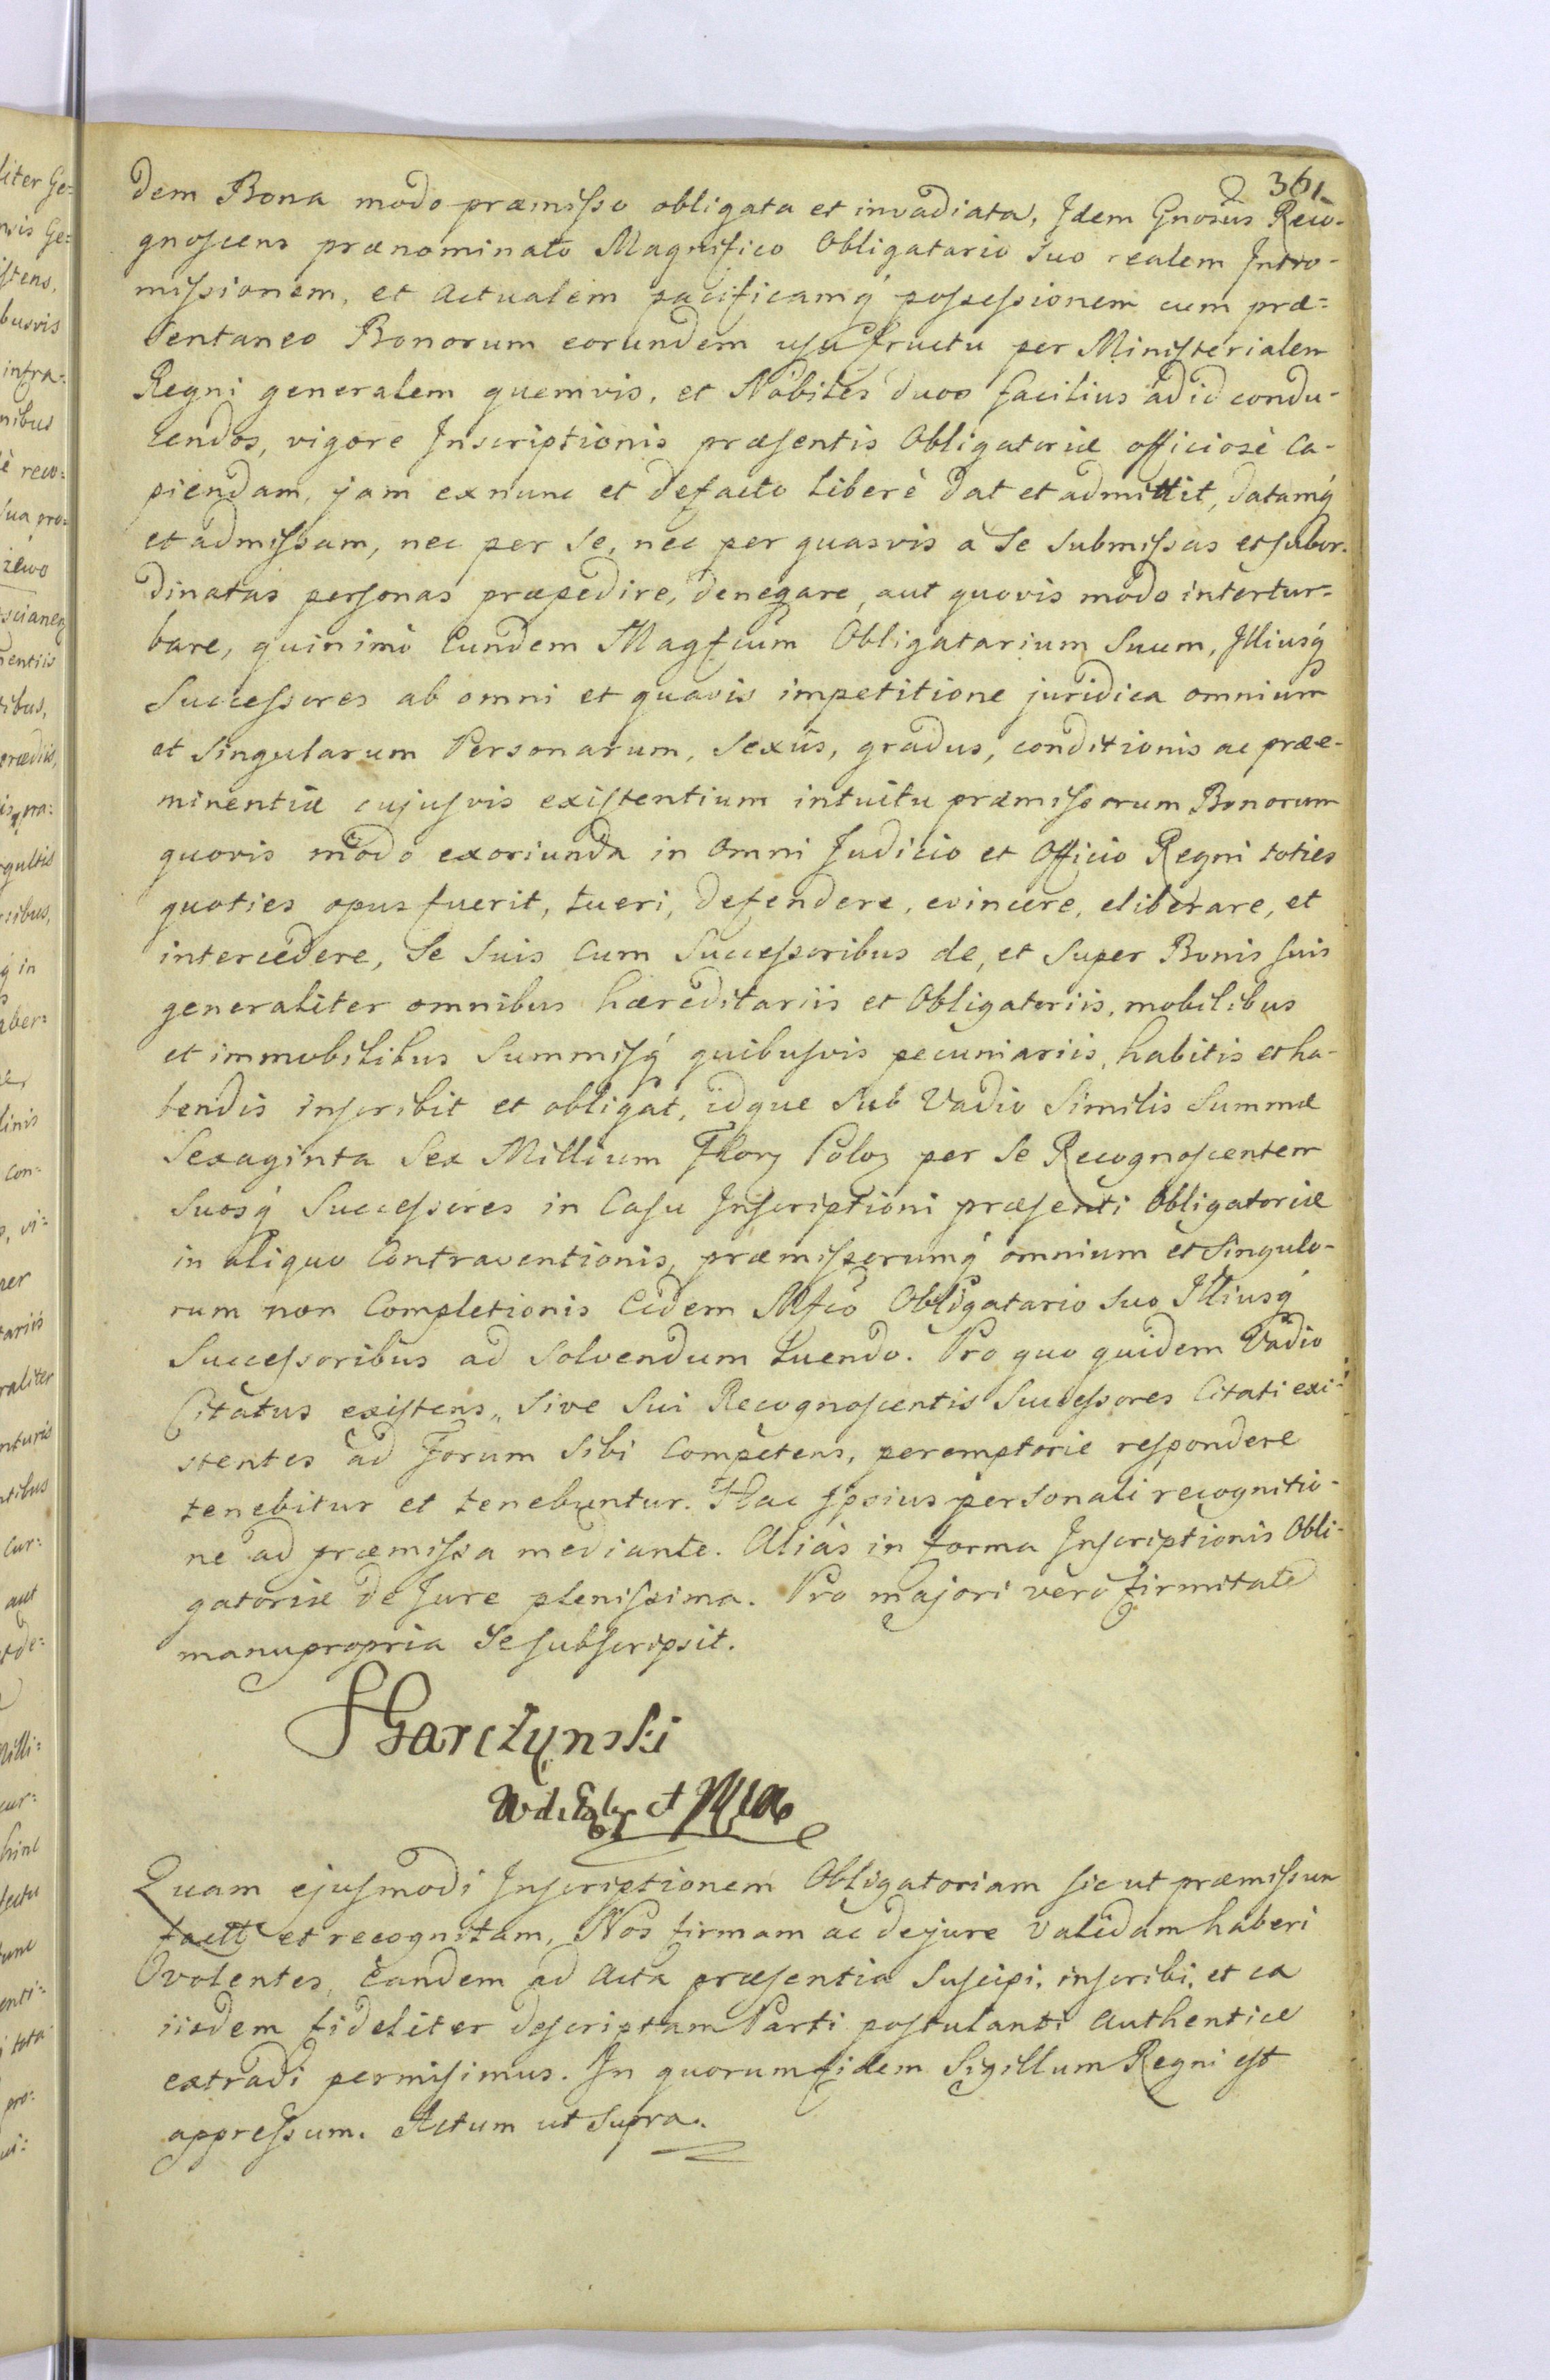 361
dem Bona modo præmisso obligata et invadiata, Idem Gnosus Reco-
gnoscens prænominato Magnifico Obligatario suo realem Intro-
missionem, et actualem pacificamq́ possessionem cum præ=
sentaneo Bonorum eorundem usufructu per Ministerialem
Regni generalem quemvis, et Nobiles duos facilius ad id condu-
cendos, vigore Inscriptionis præsentis Obligatoriæ officiosè ca-
piendam, jam exnunc et defacto liberè dat et admittit, datamq́
et admissam, nec per se, nec per quasvis a se submissas et subor-
dinatas personas præpedire, denegare, aut quovis modo intertur=
bare, quinimò Eundem Magfcum Obligatarium Suum, Illiusq́
Successores ab omni et quavis impetitione juridica omnium
et singularum Personarum, sexûs, gradus, conditionis ac præe-
minentiæ cujusvis existentium intuitu præmissorum Bonorum
quovis modo exoriunda in omni Judicio et Officio Regni toties
quoties opus fuerit, tueri, defendere, evincere, eliberare, et
intercedere, se suis cum Successoribus de, et super Bonis suis
generaliter omnibus hæreditariis et Obligatoriis, mobilibus
et immobilibus Summisq́ quibusvis pecuniariis, habitis et ha-
bendis inscribit et obligat, idque sub Vadio similis Summæ
Sexaginta Sex Millium Flory Poloy per se Recognoscentem
suosq́ Successores in Casu Inscriptioni præsenti Obligatoriæ
in aliquo Contraventionis, præmissorumq́ omnium et singulo-
rum non Completionis Eidem Mfco Obligatario suo Illiusq́
Successoribus ad solvendum luendo. Pro quo quidem Vadio
Citatus existens, sive sui Recognoscentis Successores Citati exi-
stentes ad Forum sibi Competens, peremptorie respondere
tenebitur et tenebuntur. Hac Ipsius personali recognitio-
ne ad præmissa mediante. Aliàs in forma Inscriptionis Obli-
gatoriæ de Jure plenissima. Pro majori verò firmitate
manupropria se subscripsit.
Garczynski
et
Quam ejusmodi Inscriptionem Obligatoriam sicut præmissum
et recognitam, Nos firmam ac dejure validam haberi
volentes, eandem ad Acta præsentia suscipi, inscribi, et ex
iisdem fideliter descriptam Parti postulanti Authentice
extradi permisimus. In quorum fidem Sigillum Regni est
appressum. Actum ut supra.